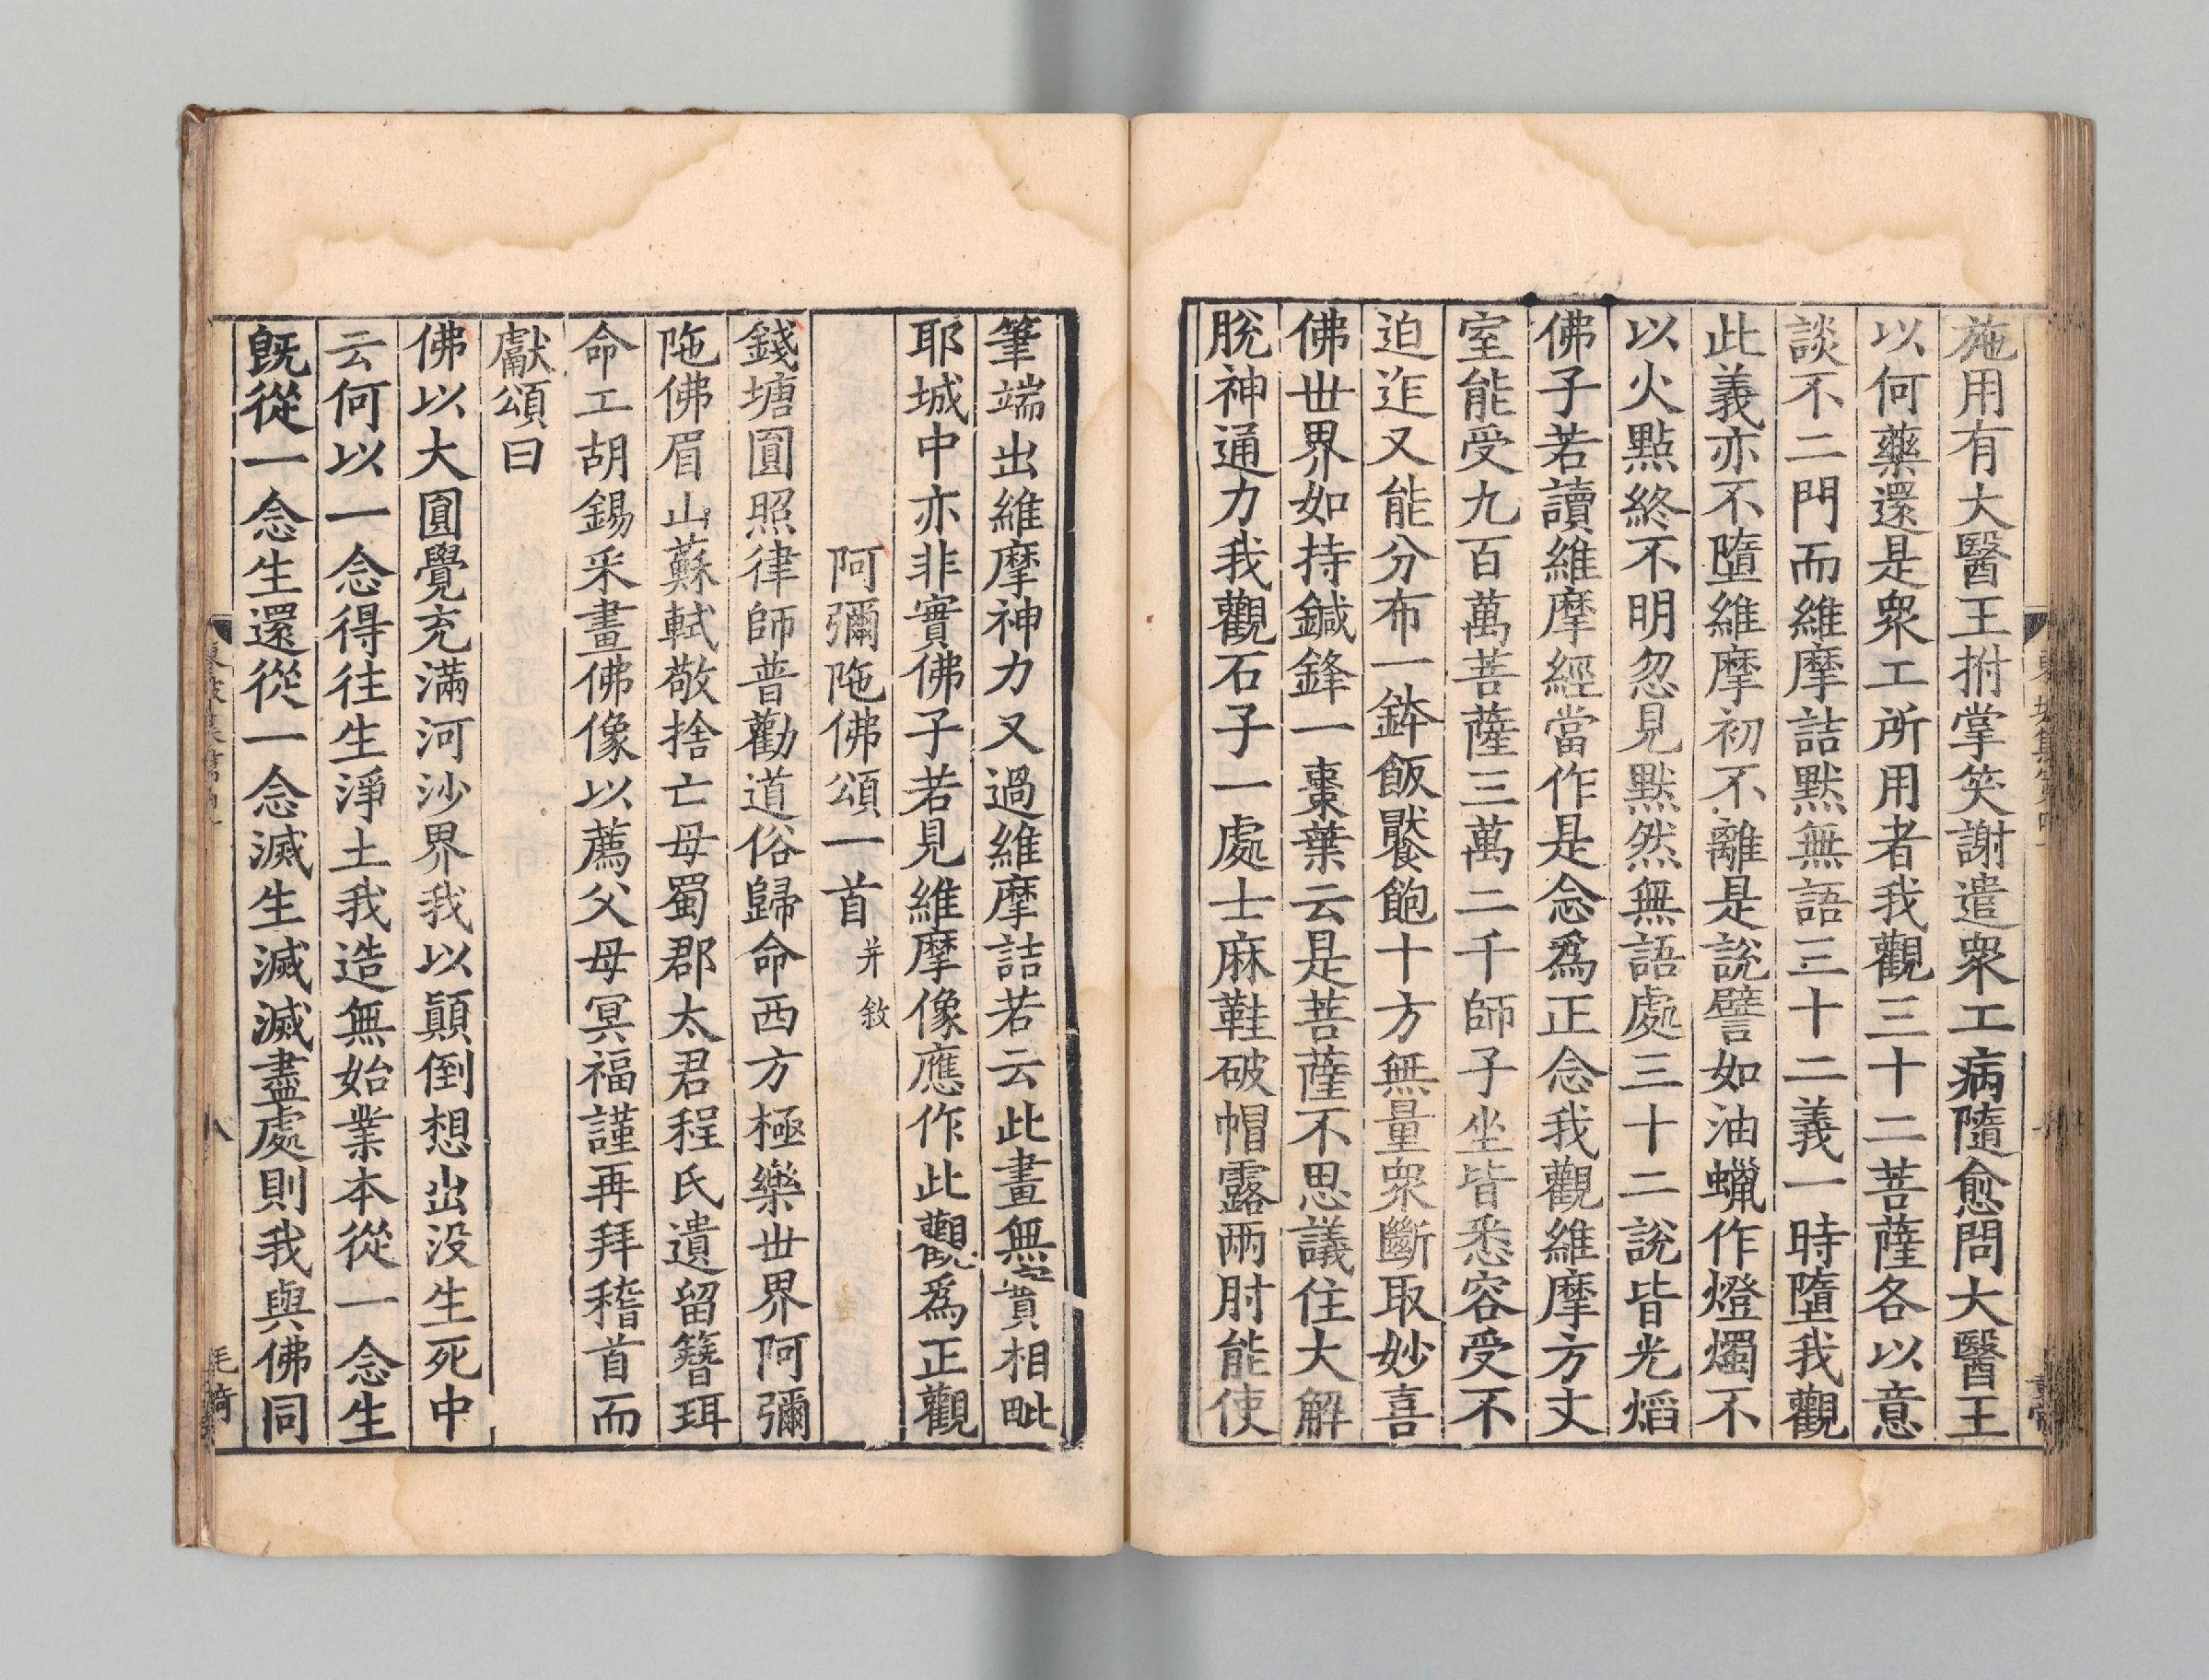 施用有大醫王拊掌笑謝遣衆工病隨愈問大醫王
以何藥還是衆工所用者我觀三十二菩薩各以意
談不二門而維摩詰默無語三十二義一時墮我觀
此義亦不墮維摩初不離是說譬如油蠟作燈燭不
以火點終不明忽見默然無語處三十二說皆光熖
佛子若讀維摩經當作是念爲正念我觀維摩方丈
室能受九百萬菩薩三萬二千師子坐皆悉容受不
迫迮又能分布一鉢飯饜飽十方無量衆斷取妙喜
佛世界如持鍼鋒一棗葉云是菩薩不思議住大解
脫神通力我觀石子一處士麻鞋破帽露兩肘能使
筆端出維摩神力又過維摩詰若云此畫無實相毗
耶城中亦非實佛子若見維摩像應作此觀爲正觀
阿彌陁佛頌一首并敘
錢塘圓照律師普勸道俗歸命西方極樂世界阿彌
陁佛眉山蘇軾敬捨亡母蜀郡太君程氏遺留簪珥
命工胡錫采畫佛像以薦父母冥福謹再拜稽首而
獻頌曰
佛以大圓覺充滿河沙界我以顚倒想出没生死中
云何以一念得往生淨土我造無始業本從一念生
旣從一念生還從一念滅生滅滅盡處則我與佛同